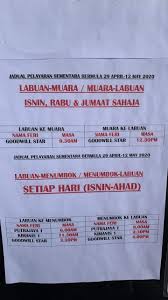 JADUAL PELAYARAN SEMENTARA BERMULA 29 APRIL-12 MAY 2020
LABUAN-MUARA / MUARA-LABUAN
ISNIN, RABU & JUMAAT SAHAJA
LABUAN KE MUARA
NAMA FERI MASA
GOODWILL STAR 9.30AM
MUARA KE LABUAN
NAMA FERI MASA
GOODWILL STAR 12.30PM
JADUAL PELAYARAN SEMENTARA BERMULA 29 APRIL-12 MAY 2020
LABUAN-MENUMBOK / MENUMBOK-LABUAN
SETIAP HARI (ISNIN-AHAD)
LABUAN KE MENUMBOK
NAMA FERI MASA
PUTRAJAYA 1
KIMANIS 1
GOODWILL STAR
MENUMBOK KE LABUAN
NAMA FERI MASA
PUTRAJAYA 1
KIMANIS 1
GOODWILL STAR